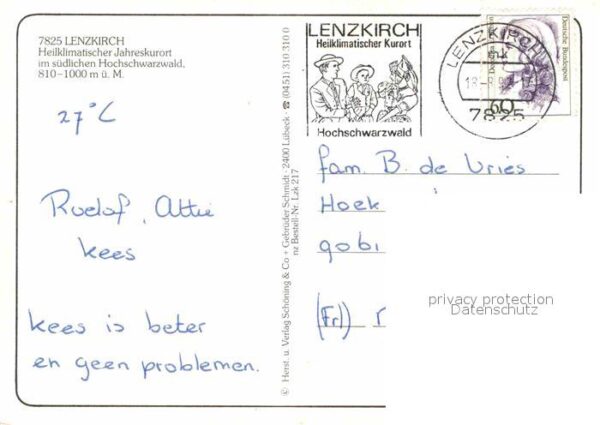 7825 LENZKIRCH
Heilklimatischer Jahreskurort
im südlichen Hochschwarzwald,
810–1000 m ü. M.
27°C
Ruelof, Attie
kees
kees is beter
en geen problemen.
© Herst. u. Verlag Schöning & Co + Gebrüder Schmidt · 2400 Lübeck · ☎ (0451) 310 310 0
nz Bestell-Nr. Lzk 217
LENZKIRCH
Heilklimatischer Kurort
Hochschwarzwald
LENZKIRCH
7825
60
Deutsche Bundespost
fam. B. de Vries
Hoek
gobi
(Frl)
privacy protection
Datenschutz